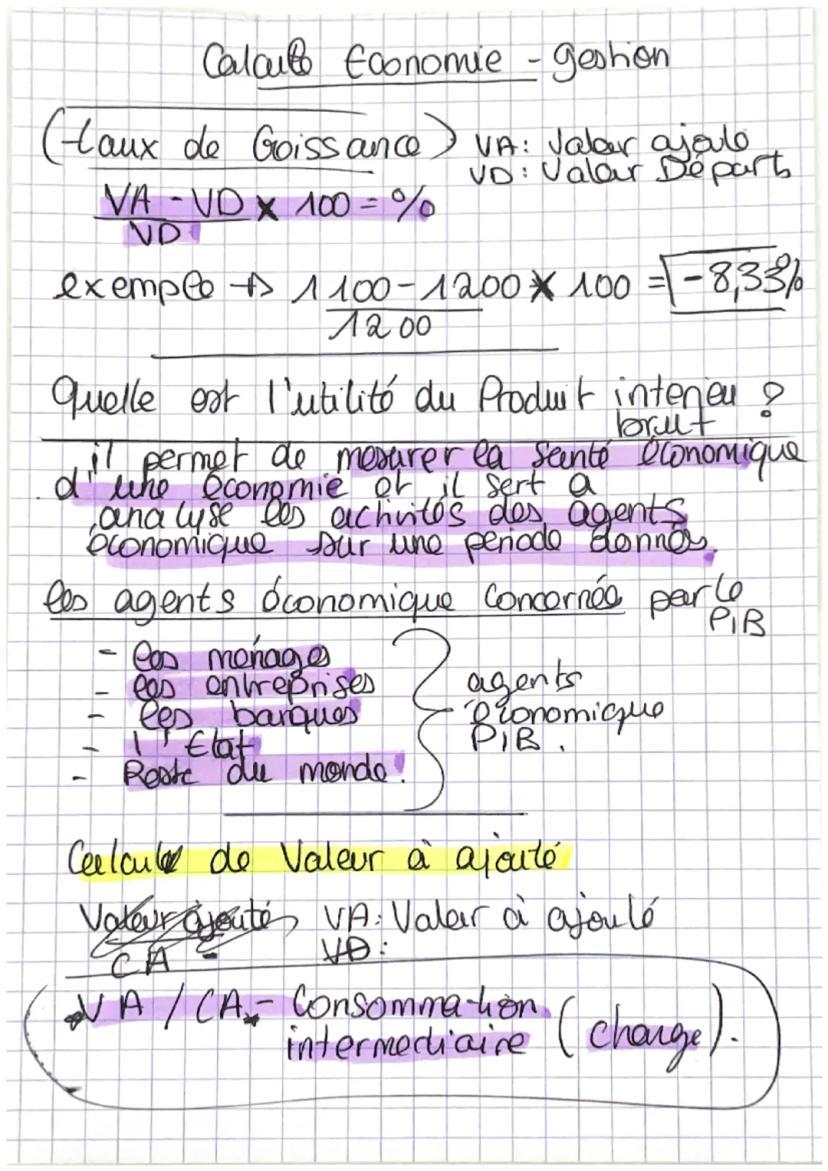 Calculs Economie - gestion
(taux de Croissance) VA: Valeur ajouté
VD: Valeur Départ
VA - VD x 100 = %
VD
exemple → 1100-1200 x 100 = -8,33%
1200
Quelle est l'utilité du Produit interieu ?
brut
il permet de mesurer la santé économique
d'une économie et il sert a
analyse les activités des agents
économique sur une période donnés.
les agents économique Concernée par le
PIB
- les ménages
- les entreprises
- les banques
- l'Etat
- Reste du monde.
agents
économique
PIB.
Calcul de Valeur à ajouté
Valeur ajouté VA: Valeur à ajouté
CA - VD:
VA / CA - Consommation
intermediaire (charge).